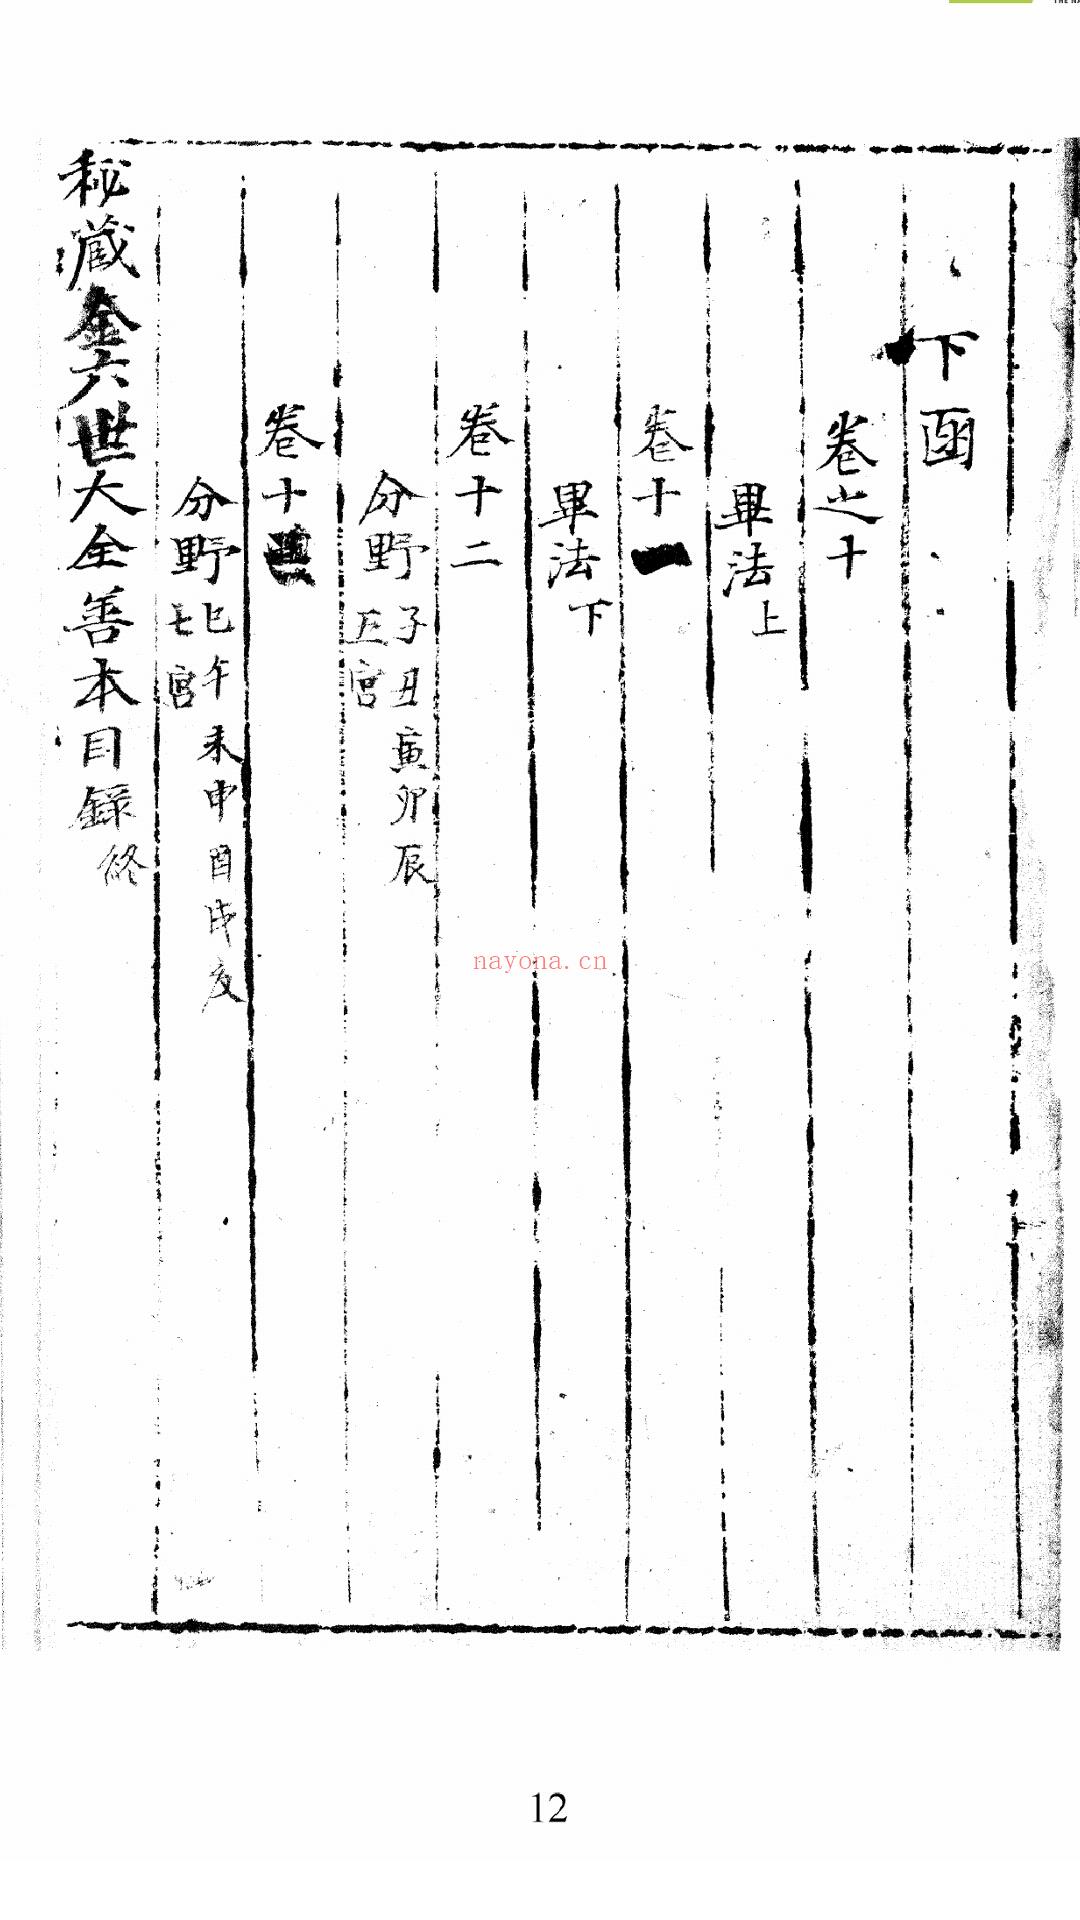 下函
卷之十
畢法上
卷十一
畢法下
卷十二
分野 子丑寅卯辰
五宮
卷十
分野 巳午未申酉戌亥
七宮
秘藏金六世大全善本目録終
nayona.cn
12